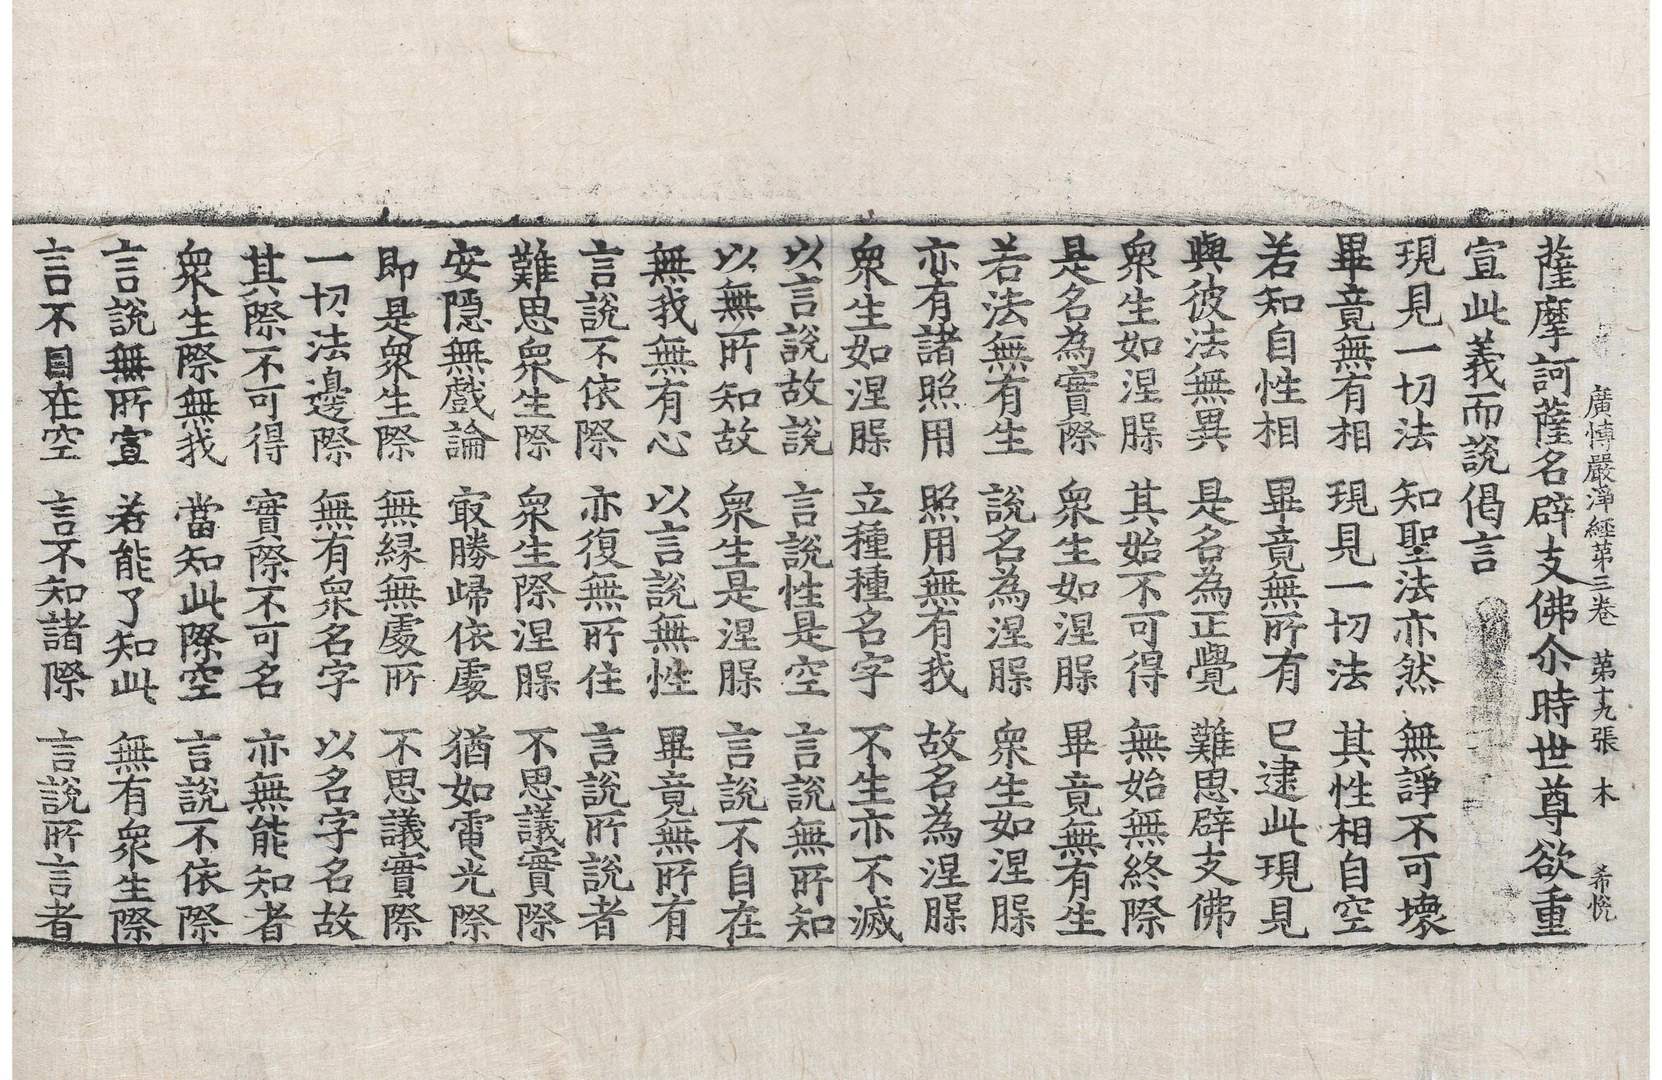 廣博嚴淨經第三卷 第十九張 木 希悅
薩摩訶薩名辟支佛尒時世尊欲重
宣此義而說偈言
現見一切法 知聖法亦然 無諍不可壞
畢竟無有相 現見一切法 其性相自空
若知自性相 畢竟無所有 已逮此現見
與彼法無異 是名為正覺 難思辟支佛
衆生如涅槃 其始不可得 無始無終際
是名為實際 衆生如涅槃 畢竟無有生
若法無有生 說名為涅槃 衆生如涅槃
亦有諸照用 照用無有我 故名為涅槃
衆生如涅槃 立種種名字 不生亦不滅
以言說故說 言說性是空 言說無所知
以無所知故 衆生是涅槃 言說不自在
無我無有心 以言說無性 畢竟無所有
言說不依際 亦復無所住 言說所說者
難思衆生際 衆生際涅槃 不思議實際
安隱無戲論 㝡勝歸依處 猶如電光際
即是衆生際 無緣無處所 不思議實際
一切法邊際 無有衆名字 以名字名故
其際不可得 實際不可名 亦無能知者
衆生際無我 當知此際空 言說不依際
言說無所宣 若能了知此 無有衆生際
言不自在空 言不知諸際 言說所言者